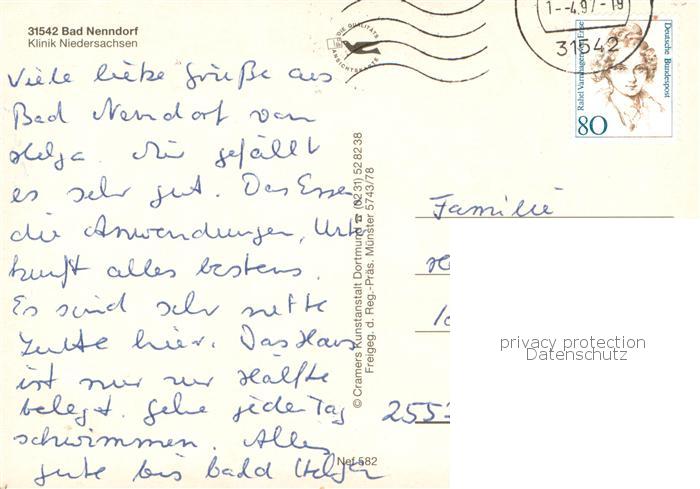 31542 Bad Nenndorf
Klinik Niedersachsen
DIE QUALITÄTS
ANSICHTSKARTE
1--4.97-19
31542
Deutsche Bundespost
Rahel Varnhagen von Ense
80
Viele liebe Grüße aus
Bad Nenndorf von
Helga. Mir gefällt
es sehr gut. Das Essen
die Anwendungen, Unter
kunft alles bestens.
Es sind sehr nette
Leute hier. Das Haus
ist nur zur Hälfte
belegt. Gehe jeden Tag
schwimmen. Alles
gute bis bald Helga
© Cramers Kunstanstalt Dortmund ☎ (0231) 528238
Freigeg. d. Reg.-Präs. Münster 5743/78
Nef 582
Familie
255
privacy protection
Datenschutz